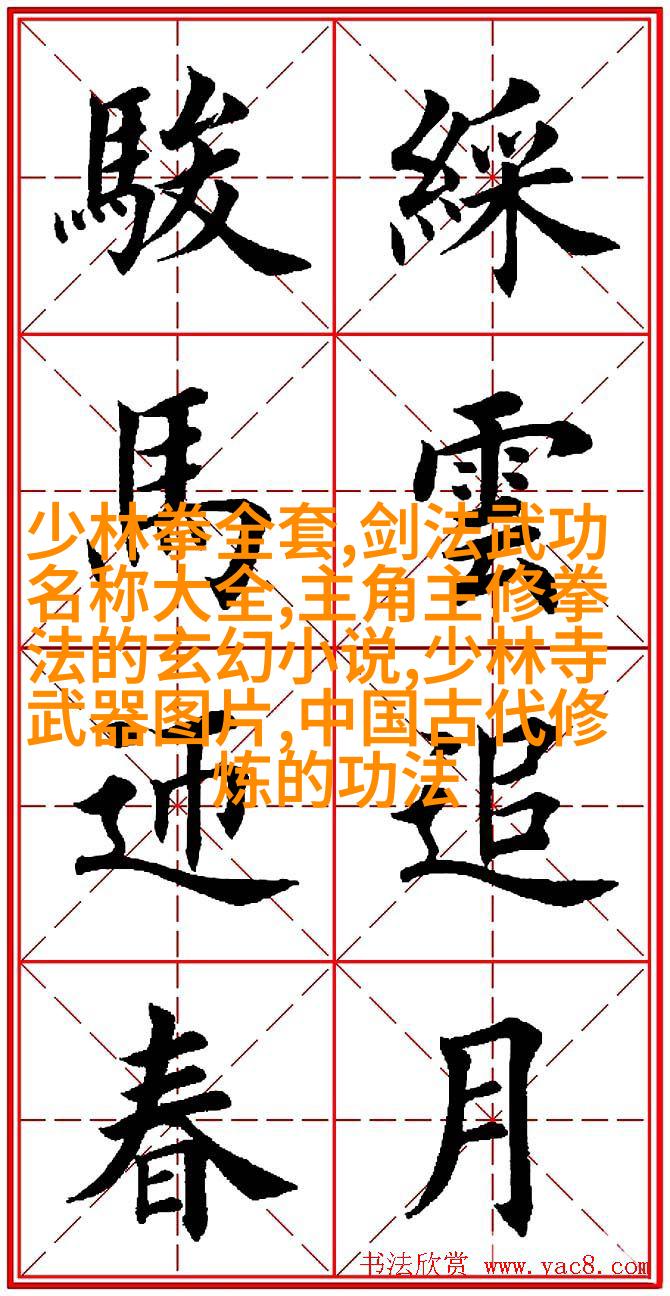 綵雲追月
駿馬迎春
少林拳全套,剑法武功
名称大全,主角主修拳
法的玄幻小说,少林寺
武器图片,中国古代修
炼的功法
书法欣赏 www.yac8.com